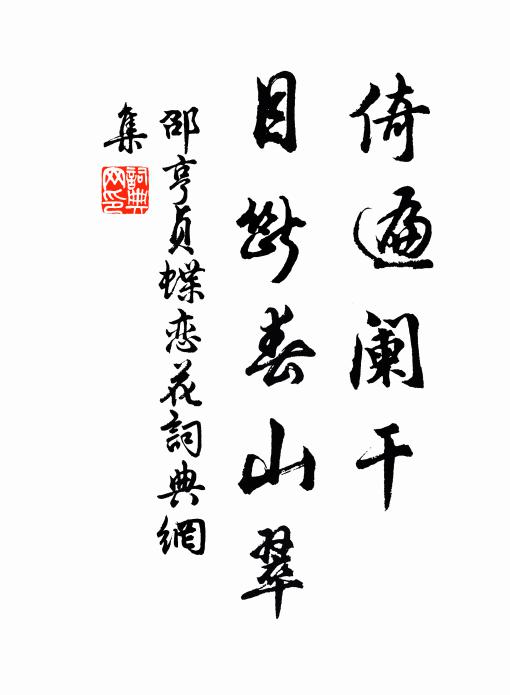 倚遍阑干
目断春山翠
邵亨貞蝶恋花詞典網
集
詞典网印